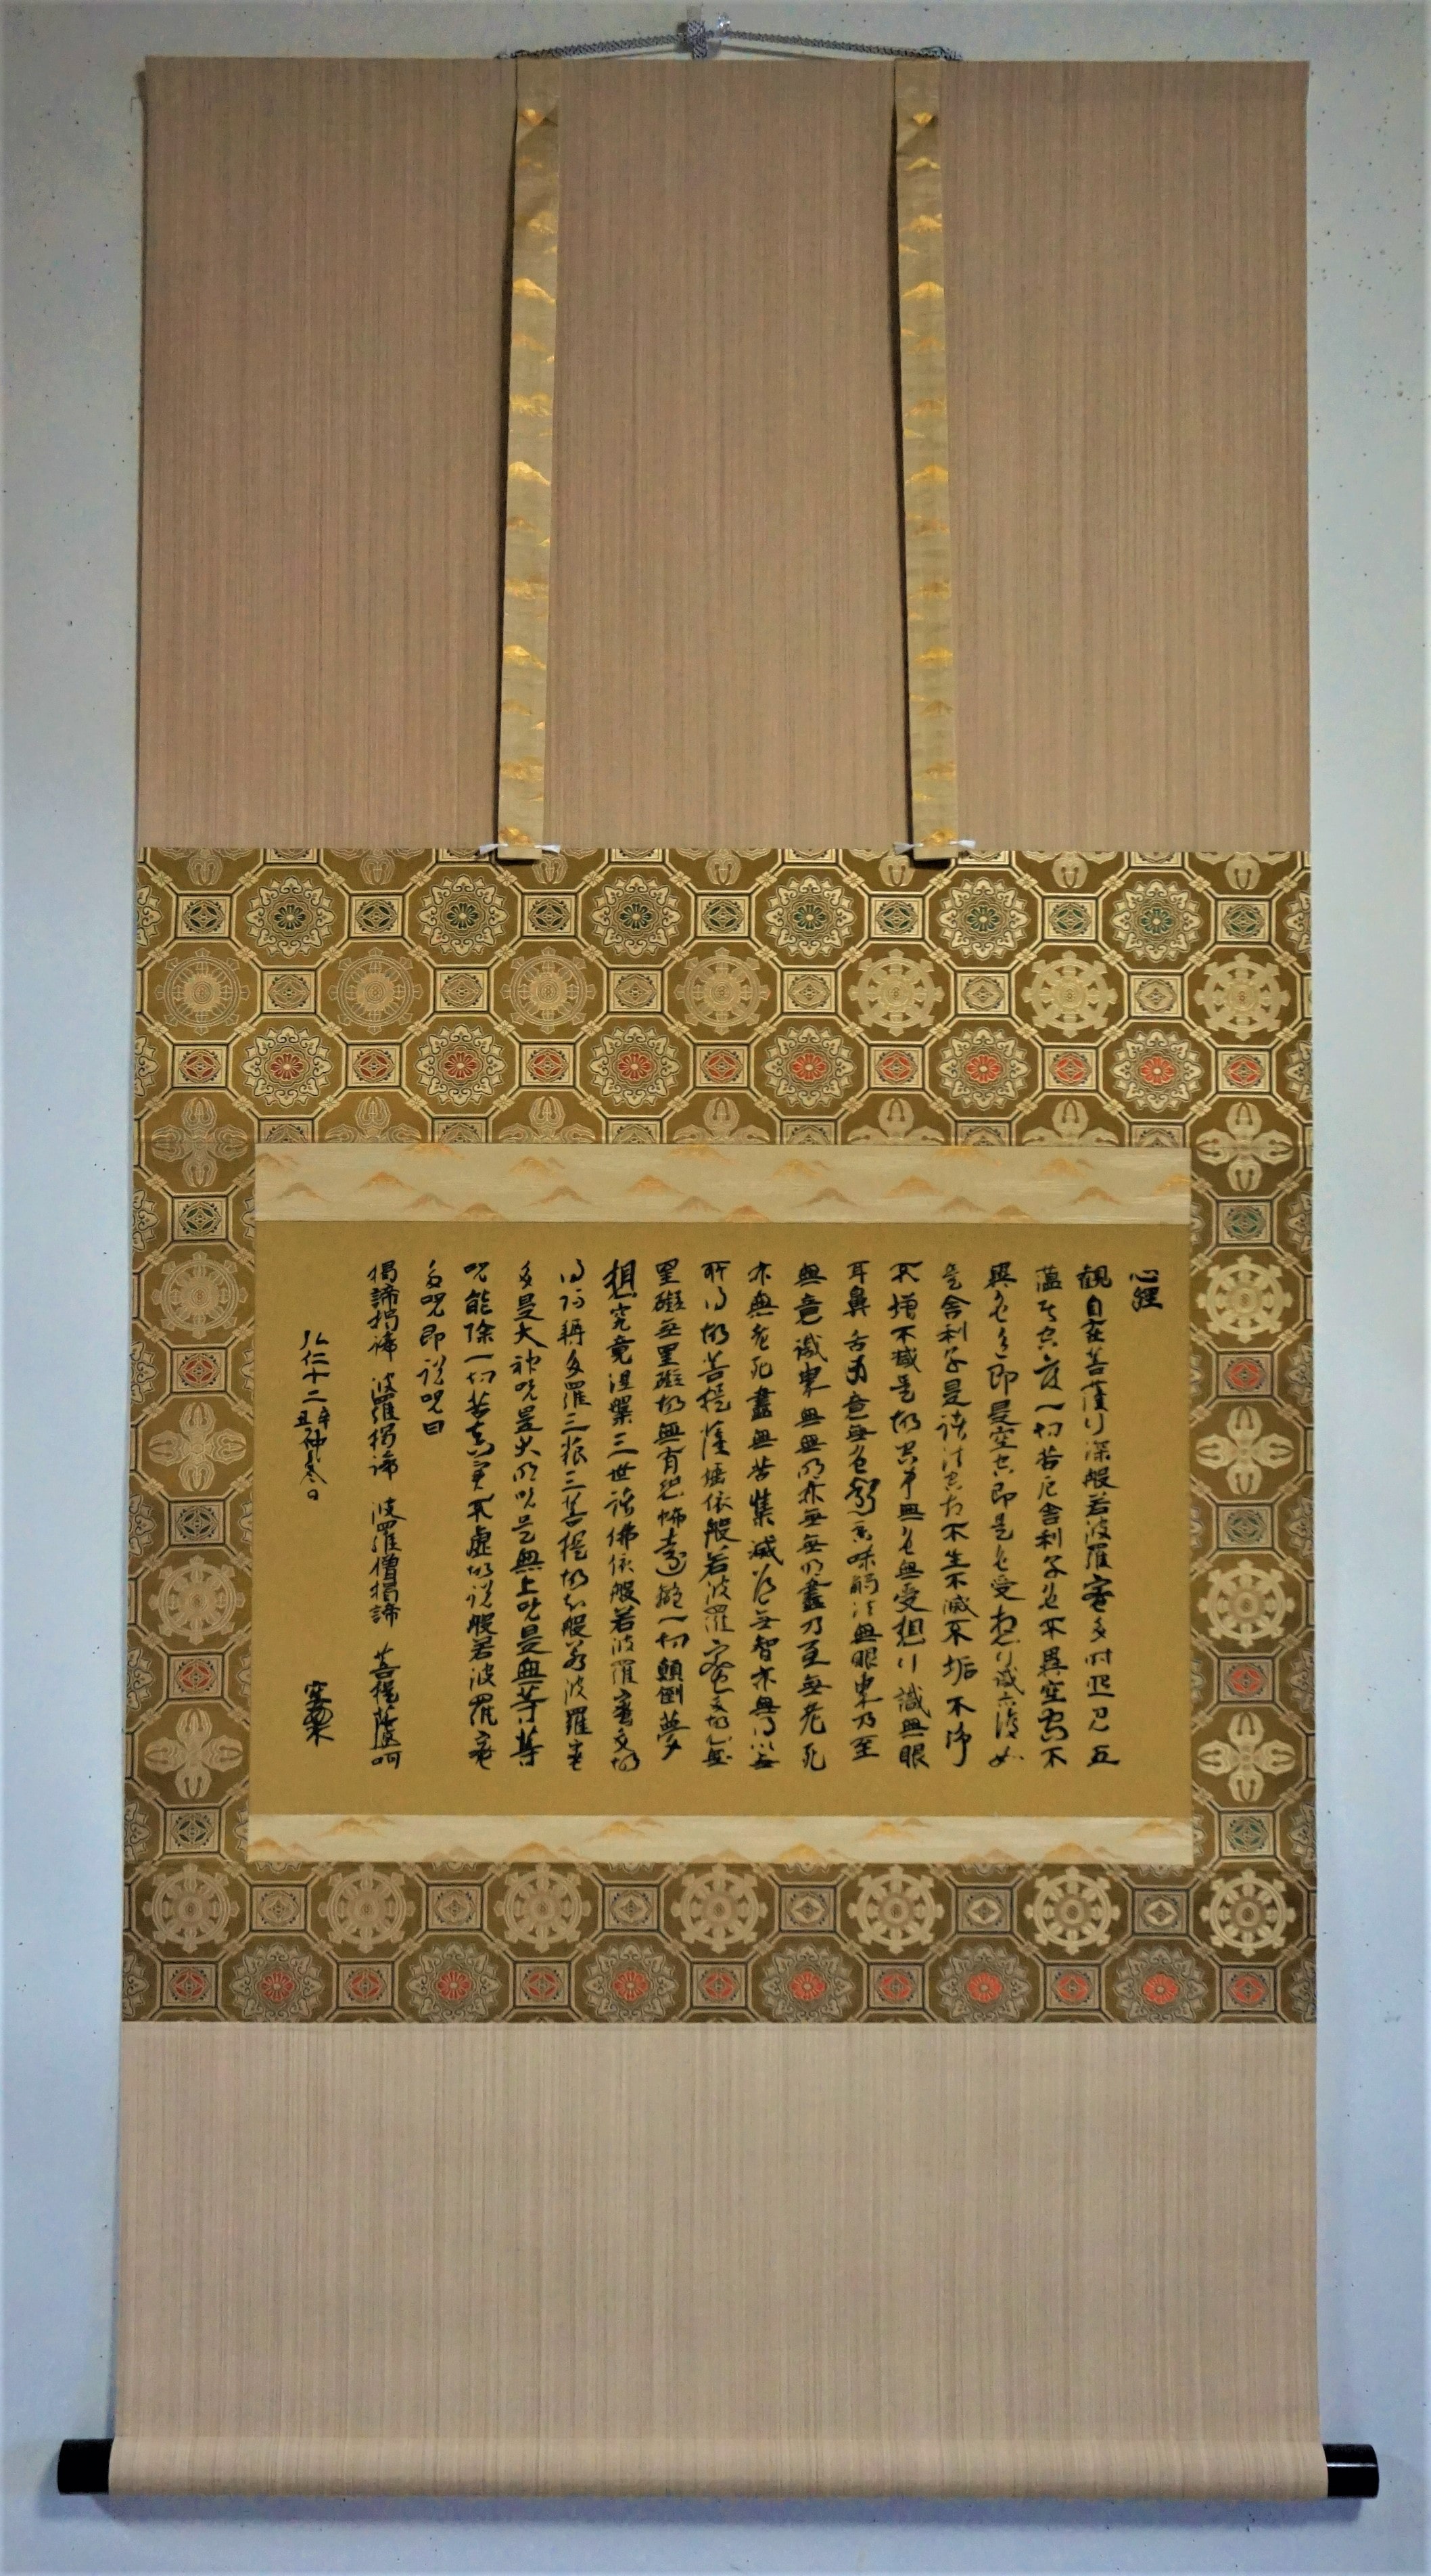 心経
觀自在菩薩行深般若波羅蜜多時照見五
蘊皆空度一切苦厄舎利子色不異空空不
異色色即是空空即是色受想行識亦復如
是舎利子是諸法空相不生不滅不垢不浄
不増不減是故空中無色無受想行識無眼
耳鼻舌身意無色聲香味觸法無眼界乃至
無意識界無無明亦無無明盡乃至無老死
亦無老死盡無苦集滅道無智亦無得以無
所得故菩提薩埵依般若波羅蜜多故心無
罣礙無罣礙故無有恐怖遠離一切顛倒夢
想究竟涅槃三世諸佛依般若波羅蜜多故
得阿耨多羅三藐三菩提故知般若波羅蜜
多是大神呪是大明呪是無上呪是無等等
呪能除一切苦真實不虚故説般若波羅蜜
多呪即説呪曰
掲諦掲諦 波羅掲諦 波羅僧掲諦 菩提薩婆呵
弘仁十二辛丑仲冬日